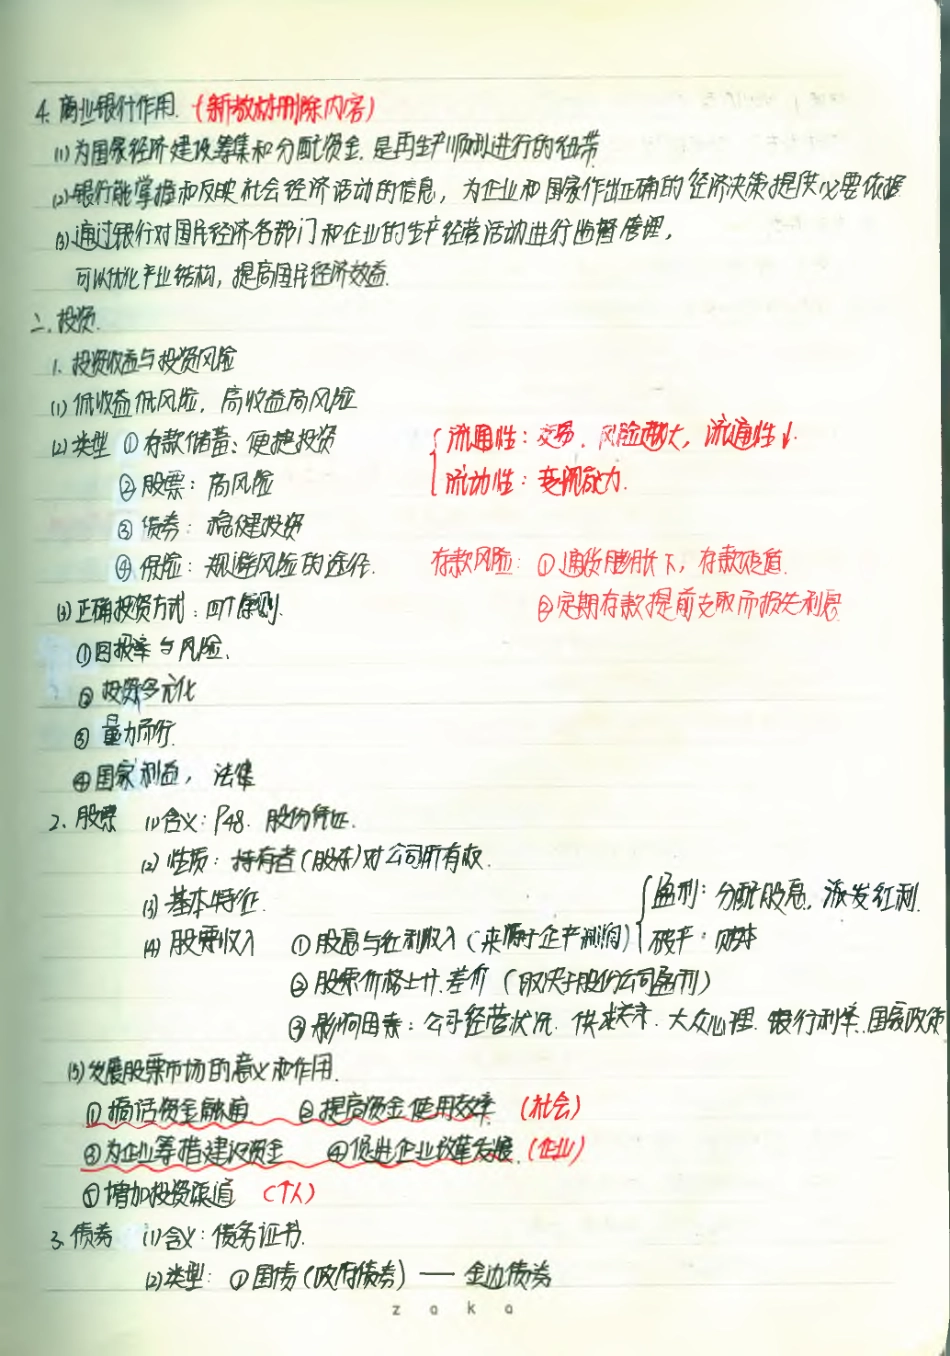 4. 商业银行作用. (新教材删除内容)
(1) 为国家经济建设筹集和分配资金, 是再生产顺利进行的纽带
(2) 银行能掌握和反映社会经济活动的信息, 为企业和国家作出正确的经济决策提供必要依据
(3) 通过银行对国民经济各部门和企业的生产经营活动进行监督管理,
可以优化产业结构, 提高国民经济效益.
二. 投资.
1. 投资收益与投资风险
(1) 低收益低风险, 高收益高风险
(2) 类型 ① 存款储蓄: 便捷投资 流通性: 交易. 风险越大, 流通性↓.
② 股票: 高风险 流动性: 变现能力.
③ 债券: 稳健投资
④ 保险: 规避风险的途径. 存款风险: ① 通货膨胀下, 存款贬值.
(3) 正确投资方式: 四个原则. ② 定期存款提前支取而损失利息
① 回报率与风险.
② 投资多元化
③ 量力而行.
④ 国家利益, 法律
2. 股票 (1) 含义: P48. 股份凭证.
(2) 性质: 持有者(股东)对公司所有权.
(3) 基本特征. 盈利: 分配股息, 派发红利.
(4) 股票收入 ① 股息与红利收入 (来源于企业利润) 破产: 赔本
② 股票价格上升.差价 (取决于股份公司盈利)
③ 影响因素: 公司经营状况. 供求关系. 大众心理. 银行利率. 国家政策
(5) 发展股票市场的意义和作用.
① 搞活资金融通 ② 提高资金使用效率 (社会)
③ 为企业筹措建设资金 ④ 促进企业改革发展. (企业)
⑤ 增加投资渠道 (个人)
3. 债券 (1) 含义: 债务证书.
(2) 类型: ① 国债 (政府债券) —— 金边债券
zaka